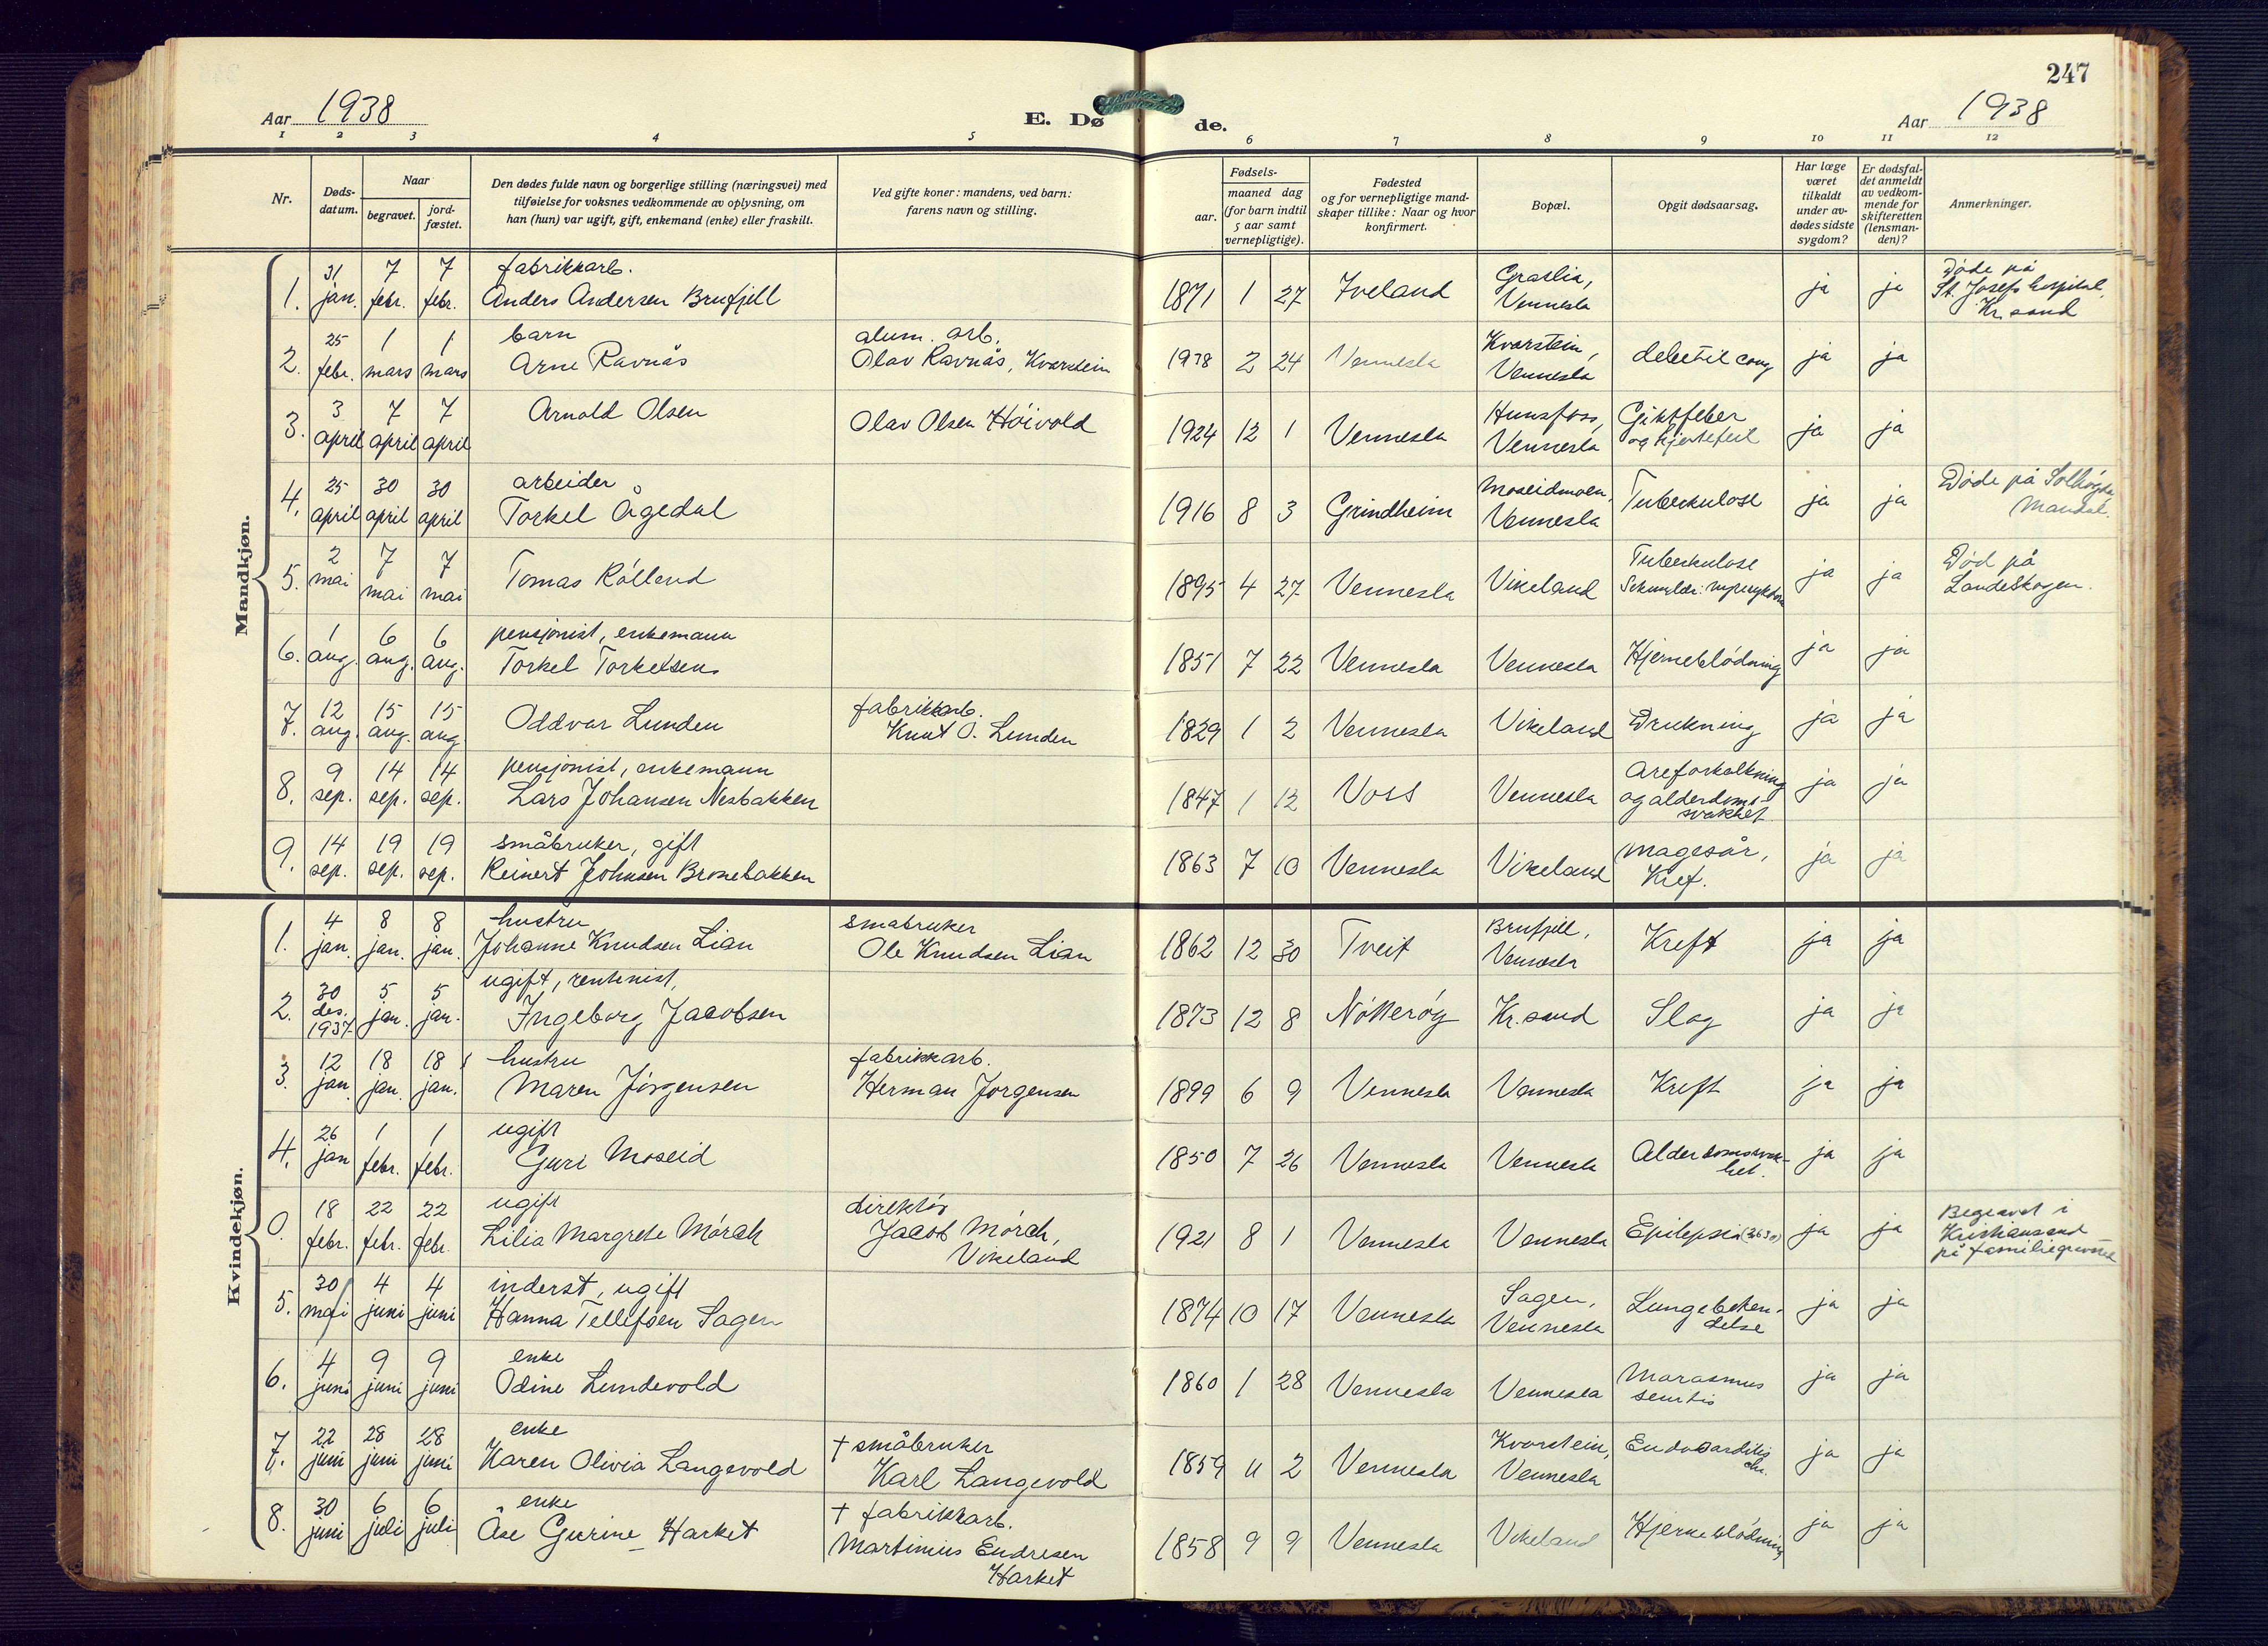 247
Aar 1938
E. Døde.
Aar 1938
1 2 3 4 5 6 7 8 9 10 11 12
Nr.
Døds-datum.
Naar
begravet.
jord-fæstet.
Den dødes fulde navn og borgerlige stilling (næringsvei) med
tilføielse for voksnes vedkommende av oplysning, om
han (hun) var ugift, gift, enkemand (enke) eller fraskilt.
Ved gifte koner: mandens, ved barn:
farens navn og stilling.
Fødsels-
aar.
maaned dag
(for barn indtil
5 aar samt
vernepligtige).
Fødested
og for vernepligtige mand-
skaper tillike: Naar og hvor
konfirmert.
Bopæl.
Opgit dødsaarsag.
Har læge
været
tilkaldt
under av-
dødes sidste
sygdom?
Er dødsfal-
det anmeldt
av vedkom-
mende for
skifteretten
(lensman-
den)?
Anmerkninger.
Mandkjøn.
1. 31 jan. 7 febr. 7 febr. fabrikkarb. Anders Andersen Brufjell 1871 1 27 Iveland Graslia, Vennesla ja ja Døde på St. Josefs hospital, Kr.sand
2. 25 febr. 1 mars 1 mars barn Arne Ravnås alum. arb. Olav Ravnås, Kvarstein 1938 2 24 Vennesla Kvarstein, Vennesla debelit cong ja ja
3. 3 april 7 april 7 april Arnold Olsen Olav Olsen Höivold 1924 12 1 Vennesla Hunsfoss, Vennesla Giktfeber og hjertefeil ja ja
4. 25 april 30 april 30 april arbeider Torkel Ågedal 1916 8 3 Grindheim Moseidmoen, Vennesla Tuberkulose ja ja Døde på Solhøgda Mandal.
5. 2 mai 7 mai 7 mai Tomas Rölland 1895 4 27 Vennesla Vikeland Tuberkulose ja ja Død på Landeskogen.
6. 1 aug. 6 aug. 6 aug. pensjonist, enkemann Torkel Torkelsen 1851 7 22 Vennesla Vennesla Hjerneblödning ja ja
7. 12 aug. 15 aug. 15 aug. Oddvar Lunden fabrikkarb. Knut O. Lunden 1829 1 2 Vennesla Vikeland Drukning ja ja
8. 9 sep. 14 sep. 14 sep. pensjonist, enkemann Lars Johansen Nesbakken 1847 1 12 Voss Vennesla Areforkalkning og alderdoms-svakhet ja ja
9. 14 sep. 19 sep. 19 sep. småbruker, gift Reinert Johnsen Bronebakken 1863 7 10 Vennesla Vikeland Magesår, Kref. ja ja
Kvindekjøn.
1. 4 jan. 8 jan. 8 jan. hustru Johanne Knudsen Lian småbruker Ole Knudsen Lian 1862 12 30 Tveit Brufjell, Vennesla Kreft ja ja
2. 30 des. 1937 5 jan. 5 jan. ugift, rentenist, Ingeborg Jacobsen 1873 12 8 Nötteröy Kr.sand Slag ja ja
3. 12 jan. 18 jan. 18 jan. hustru Maren Jörgensen fabrikkarb. Herman Jörgensen 1899 6 9 Vennesla Vennesla Kreft ja ja
4. 26 jan 1 febr. 1 febr. ugift Guri Moseid 1850 7 26 Vennesla Vennesla Alderdomssvak-het. ja ja
0. 18 febr. 22 febr. 22 febr. ugift Lilia Margrete Mörch direktör Jacob Mörch, Vikeland 1921 8 1 Vennesla Vennesla Epilepsia ja ja Begravet i Kristiansand på familiegravsted
5. 30 mai 4 juni 4 juni inderst, ugift Hanna Tellefsen Sagen 1874 10 17 Vennesla Sagen, Vennesla Lungebeten-delse ja ja
6. 4 juni 9 juni 9 juni enke Odine Lundevold 1860 1 28 Vennesla Vennesla Marasmus senilis ja ja
7. 22 juni 28 juni 28 juni enke Karen Olivia Langevold † småbruker Karl Langevold 1859 11 2 Vennesla Kvarstein, Vennesla Endocarditis chr. ja ja
8. 30 juni 6 juli 6 juli enke Åse Gurine Harket † fabrikkarb. Martinius Endresen Harket 1858 9 9 Vennesla Vikeland Hjerneblödning ja ja